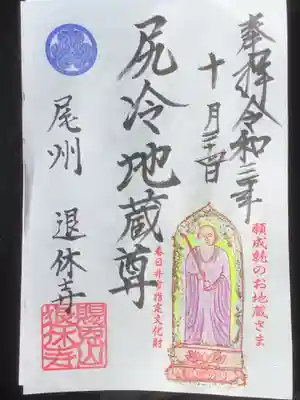 奉拝令和三年
十月
願成就のお地蔵さま
尻冷地蔵尊
春日井市指定文化財
尾州 退休寺